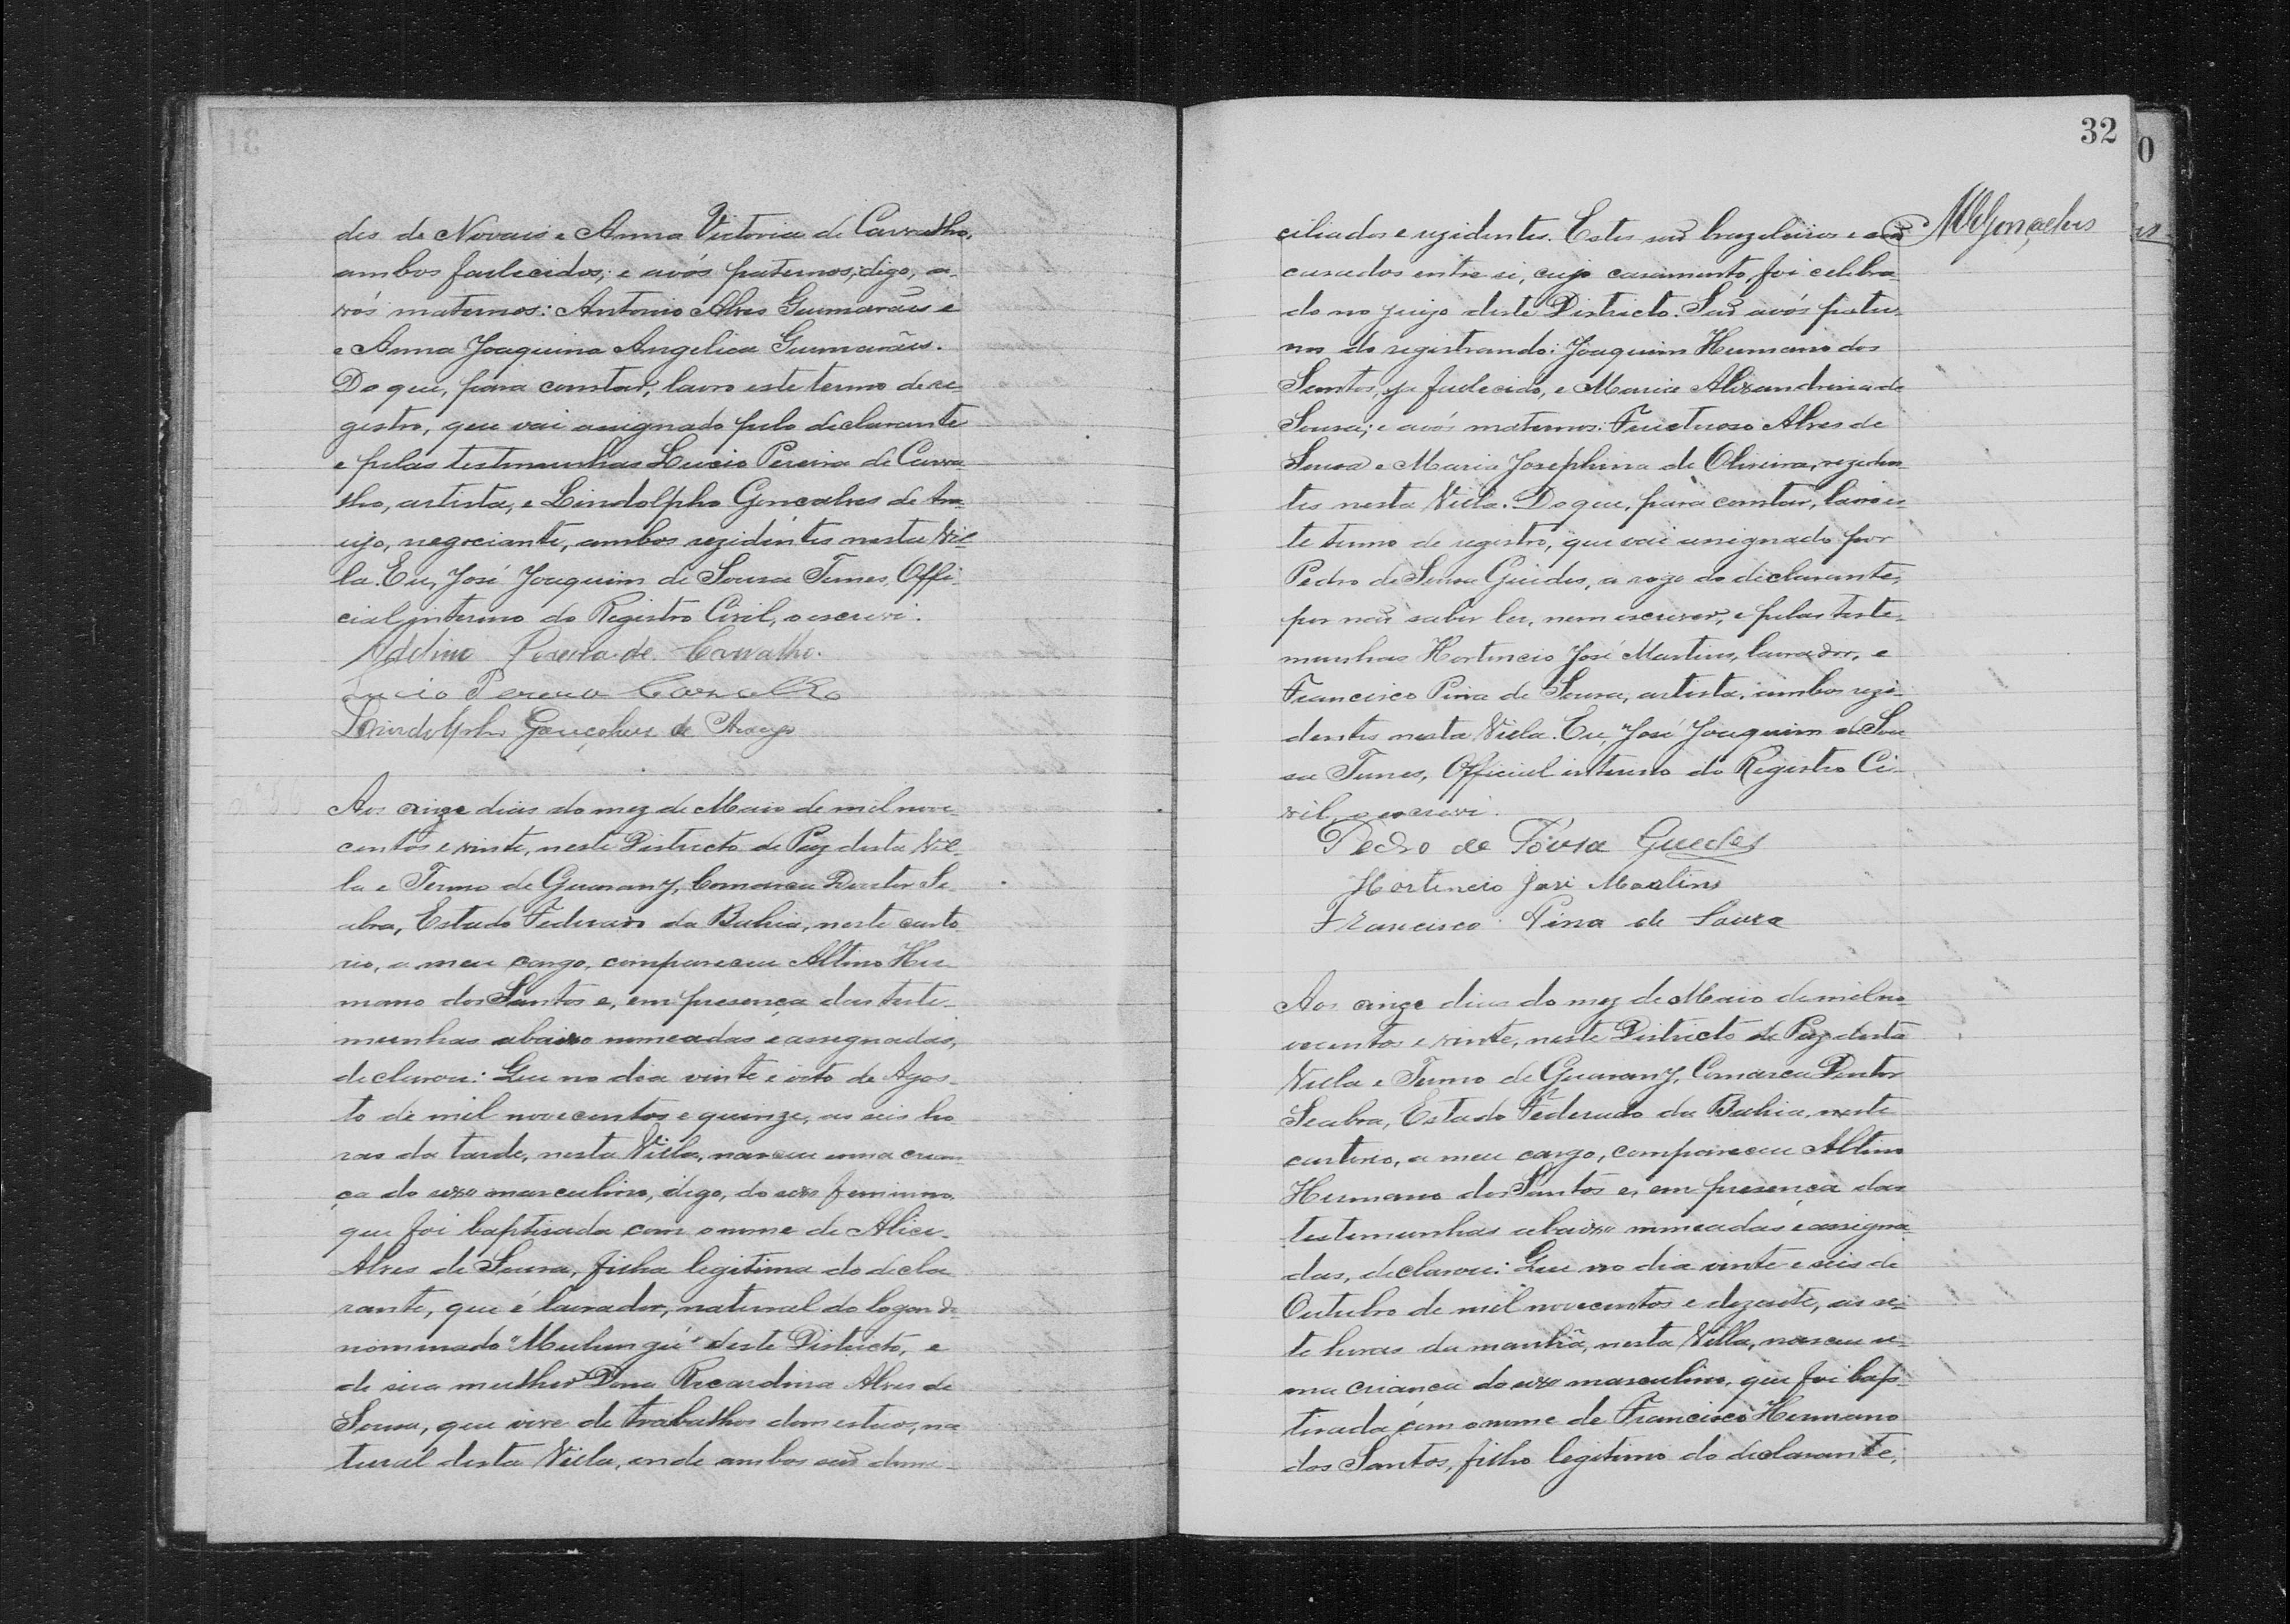 des de Novais e Anna Victoria de Carvalho,
ambos fallecidos; e avós paternos, digo, a-
vós maternos: Antonio Alves Guimarães e
e Anna Joaquina Angelica Guimarães.
Do que, para constar, lavro este termo de re-
gistro, que vai assignado pelo declarante
e pelas testemunhas Lucio Pereira de Carva-
lho, artista, e Lindolpho Gonçalves de Ara-
ujo, negociante, ambos rezidentes nesta Vil-
la. Eu, José Joaquim de Sousa Tunes, Offi-
cial interino do Registro Civil, o escrevi.
Adelino Pereira de Carvalho.
Lucio Pereira Carvalho
Lindolpho Gonçalves de Araujo
Aos onze dias do mez de Maio de mil nove-
centos e vinte, neste Districto de Paz desta Vil-
la e Termo de Guarany, Comarca Doutor Se-
abra, Estado Federado da Bahia, neste carto-
rio, a meu cargo, compareceu Altino Her-
mano dos Santos e, em presença das teste-
munhas abaixo nomeadas e assignadas,
declarou: Que no dia vinte e oito de Agos-
to de mil novecentos e quinze, as seis ho-
ras da tarde, nesta Villa, nasceu uma crean-
ça do sexo masculino, digo, do sexo feminino,
que foi baptisada com o nome de Alice
Alves de Sousa, filha legitima do decla-
rante, que é lavrador, natural do logar de-
nominado "Mulungú" deste Districto, e
de sua mulher Dona Ricardina Alves de
Sousa, que vive de trabalhos domesticos, na-
tural desta Villa, onde ambos são domi-
32
ciliados e rezidentes. Estes são brazileiros e são
casados entre si, cujo casamento foi celebra-
do no juizo deste Districto. São avós pater-
nos do registrando: Joaquim Hermano dos
Santos, ja fallecido, e Maria Alexandrina de
Sousa; e avós maternos: Fructuoso Alves de
Sousa e Maria Josephina de Oliveira, reziden-
tes nesta Villa. Do que, para constar, lavro es-
te termo de registro, que vai assignado por
Pedro de Sousa Guedes, a rogo do declarante,
por não saber ler, nem escrever, e pelas teste-
munhas Hortencio José Martins, lavrador, e
Francisco Pina de Sousa, artista, ambos rezi-
dentes nesta Villa. Eu, José Joaquim de Sou-
sa Tunes, Official interino do Registro Ci-
vil, o escrevi.
Pedro de Sousa Guedes
Hortencio José Martins
Francisco Pina de Souza
Aos onze dias do mez de Maio de mil no-
vecentos e vinte, neste Districto de Paz desta
Villa e Termo de Guarany, Comarca Doutor
Seabra, Estado Federado da Bahia, neste
cartorio, a meu cargo, compareceu Altino
Hermano dos Santos e, em presença das
testemunhas abaixo nomeadas e assigna-
das, declarou: Que no dia vinte e seis de
Outubro de mil novecentos e dezesete, as se-
te horas da manhã, nesta Villa, nasceu u-
ma criança do sexo masculino, que foi bap-
tisada com o nome de Francisco Hermano
dos Santos, filho legitimo do declarante,